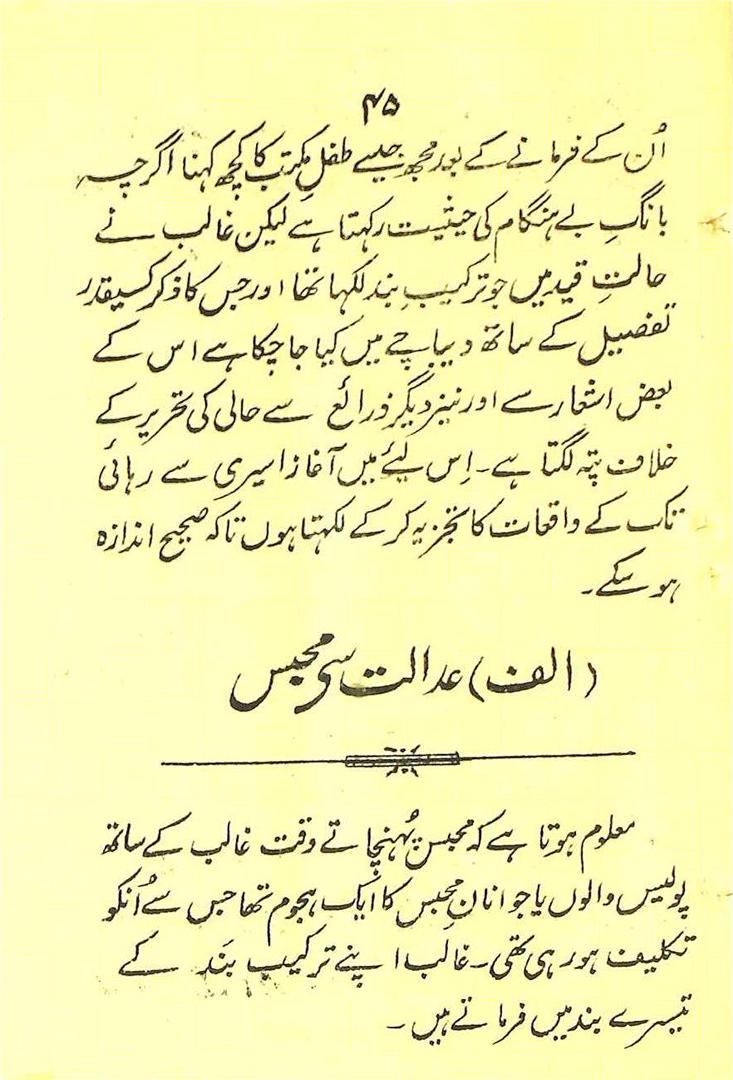 ۴۵
اُن کے فرمانے کے بعد مجھ جیسے طفلِ مکتب کا کچھ کہنا اگرچہ
بانگِ بے ہنگام کی حیثیت رکہتا ہے لیکن غالب نے
حالتِ قید میں جو ترکیب بند لکہا تھا اور جس کا ذکر کسیقدر
تفصیل کے ساتھ دیباچے میں کیا جا چکا ہے اس کے
بعض اشعار سے اور نیز دیگر ذرائع سے حالی کی تحریر کے
خلاف پتہ لگتا ہے۔ اِس لیٔے میں آغاز اسیری سے رہائی
تک کے واقعات کا تجزیہ کر کے لکہتا ہوں تاکہ صحیح اندازہ
ہو سکے۔
(الف) عدالت سی محبس
معلوم ہوتا ہے کہ محبس پہُنچاتے وقت غالب کے ساتھ
پولیس والوں یا جوانانِ محبس کا ایک ہجوم تھا جس سے اُنکو
تکلیف ہو رہی تھی۔ غالب اپنے ترکیب بَند کے
تیسرے بند میں فرماتے ہیں۔